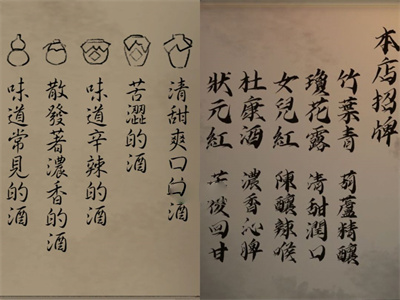 清甜爽口的酒
苦澀的酒
味道辛辣的酒
散發著濃香的酒
味道常見的酒
本店招牌
竹葉青 葫蘆精釀
瓊花露 清甜潤口
女兒紅 陳釀辣喉
杜康酒 濃香沁脾
狀元紅 回甘